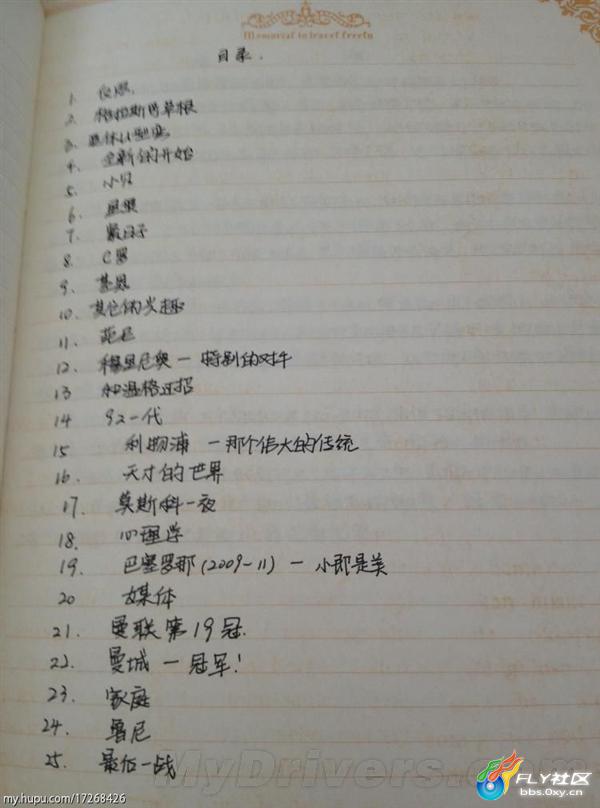 Memorial to travel
目录.
1.
2. 格拉斯哥草根
3. 退休U型弯
4. 全新的开始
5. 小贝
6.
7. 紧日子
8. C罗
9. 基恩
10. 其它的兴趣
11. 范尼
12. 穆里尼奥 — 特别的对手
13 和温格过招
14 92一代
15 利物浦 — 那个伟大的传统
16. 天才的世界
17. 莫斯科一夜
18. 心理学
19. 巴塞罗那(2009-11) — 小即是美
20 媒体
21. 曼联第19冠.
22. 曼城 — 冠军!
23. 家庭
24. 鲁尼
25. 最后一战
MyDrivers.com
my.hupu.com/17268426
FLY社区
bbs.0xy.cn